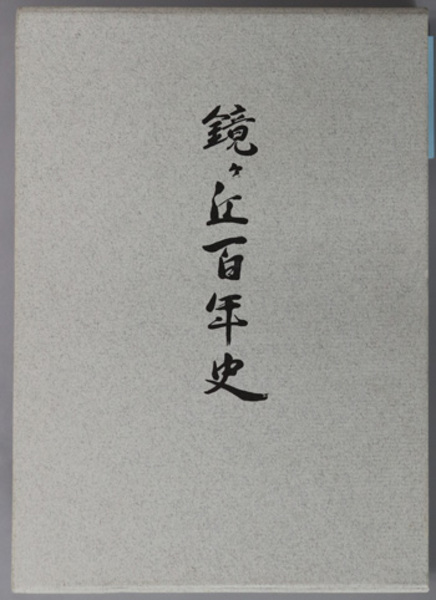 鏡ヶ丘百年史